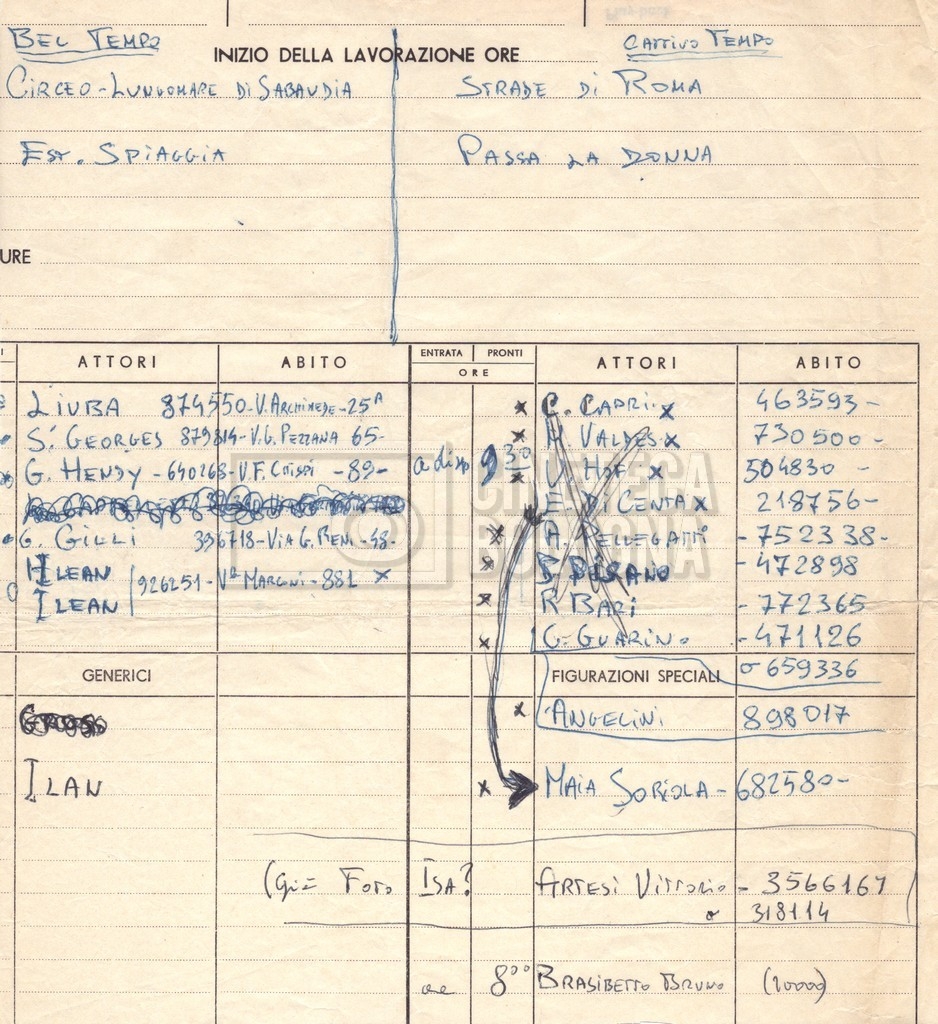 BEL TEMPO
CATTIVO TEMPO
INIZIO DELLA LAVORAZIONE ORE
CIRCEO - LUNGOMARE DI SABAUDIA
STRADE DI ROMA
EST. SPIAGGIA
PASSA LA DONNA
URE
ATTORI ABITO ENTRATA PRONTI ATTORI ABITO
ORE
LIUBA 874550 - V. ARCHIMEDE - 25A
x C. CAPRI x 463593 -
S. GEORGES 879314 - V. G. PEZZANA 65 -
x VALDES x 730500 -
G. HENDY - 640268 - V. F. CRISPI - 89 -
a disp 9 30 x HOF x 504830 -
E. DI CENTA x 218756 -
G. GILLI 396718 - VIA G. RENI - 48 -
x A. PELLEGATTI - 752338 -
HLEAN
926251 - VLE MARCONI - 881 x
x - 472898
ILEAN
x R BARI - 772365
x G. GUARINO - 471126
o 659336
GENERICI FIGURAZIONI SPECIALI
x ANGELINI 898017
ILAN
x MAIA SORIOLA - 682580 -
(Già FOTO ISA? ARTESI VITTORIO - 3566167
o 318114
ore 8 00 BRASIBETTO BRUNO (20000)
CINETECA
BOLOGNA